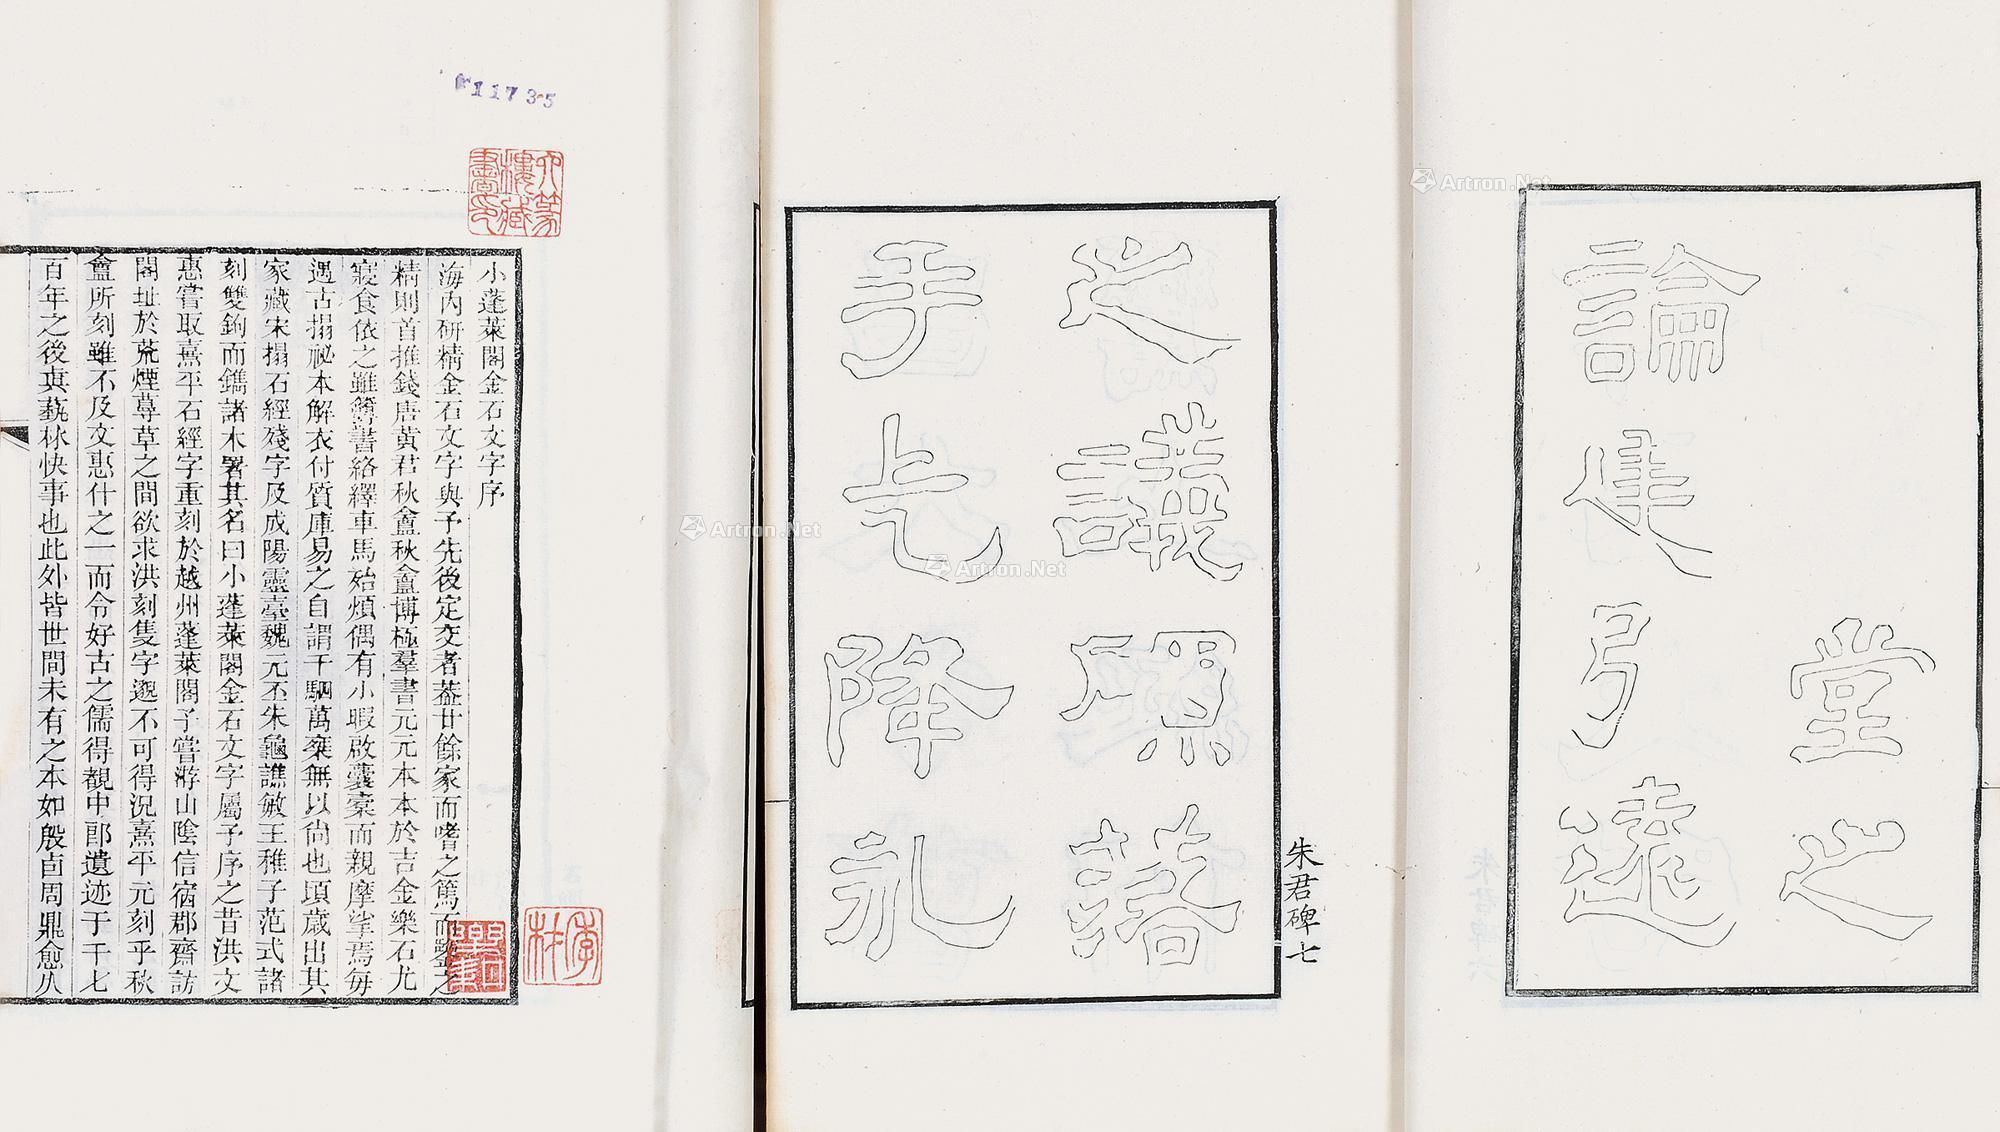 11735
小蓬萊閣金石文字序
海內研精金石文字與予先後定交者葢廿餘家而嗜之篤而鑒之
精則首推錢唐黃君秋盦秋盦博極羣書元元本本於吉金樂石尤
寢食依之雖簿書絡繹車馬殆煩偶有小暇啟囊槖而親摩挲焉每
遇古搨祕本解衣付質庫易之自謂千駟萬鍾無以尙也頃歲出其
家藏宋搨石經殘字及成陽靈臺魏元丕朱龜譙敏王稚子范式諸
刻雙鉤而鐫諸木署其名曰小蓬萊閣金石文字屬予序之昔洪文
惠嘗取熹平石經字重刻於越州蓬萊閣予嘗游山陰信宿郡齋訪
閣址於荒煙蔓草之間欲求洪刻隻字邈不可得況熹平元刻乎秋
盦所刻雖不及文惠什之一而令好古之儒得觀中郎遺迹于千七
百年之後真藝林快事也此外皆世間未有之本如殷卣周鼎愈從
之議隰落
手乞降
朱君碑七
堂之
論建弓遠
Artron.Net
Artron.Net
Artron.Net